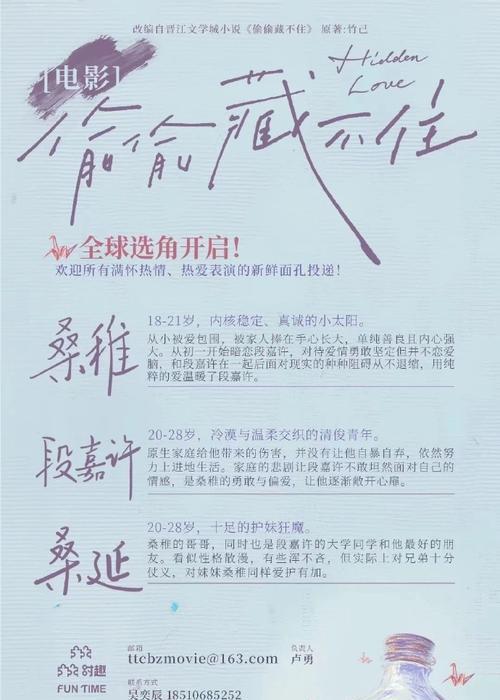 改编自晋江文学城小说《偷偷藏不住》 原著:竹已
[电影]
Hidden
Love
偷偷藏不住
全球选角开启!
欢迎所有满怀热情、热爱表演的新鲜面孔投递!
桑稚
18-21岁，内核稳定、真诚的小太阳。
从小被爱包围，被家人捧在手心长大，单纯善良且内心强
大。从初一开始暗恋段嘉许，对待爱情勇敢坚定但并不恋爱
脑，和段嘉许在一起后面对现实的种种阻碍从不退缩，用纯
粹的爱温暖了段嘉许。
段嘉许
20-28岁，冷漠与温柔交织的清俊青年。
原生家庭给他带来的伤害，并没有让他自暴自弃，依然努
力上进地生活。家庭的悲剧让段嘉许不敢坦然面对自己的
情感，是桑稚的勇敢与偏爱，让他逐渐敞开心扉。
桑延
20-28岁，十足的护妹狂魔。
桑稚的哥哥，同时也是段嘉许的大学同学和他最好的朋
友。看似性格散漫，有些浑不吝，但实际上对兄弟十分
仗义，对妹妹桑稚同样爱护有加。
时趣
FUN TIME
邮箱
ttcbzmovie@163.com
负责人
卢勇
联系方式
吴奕辰 18510685252